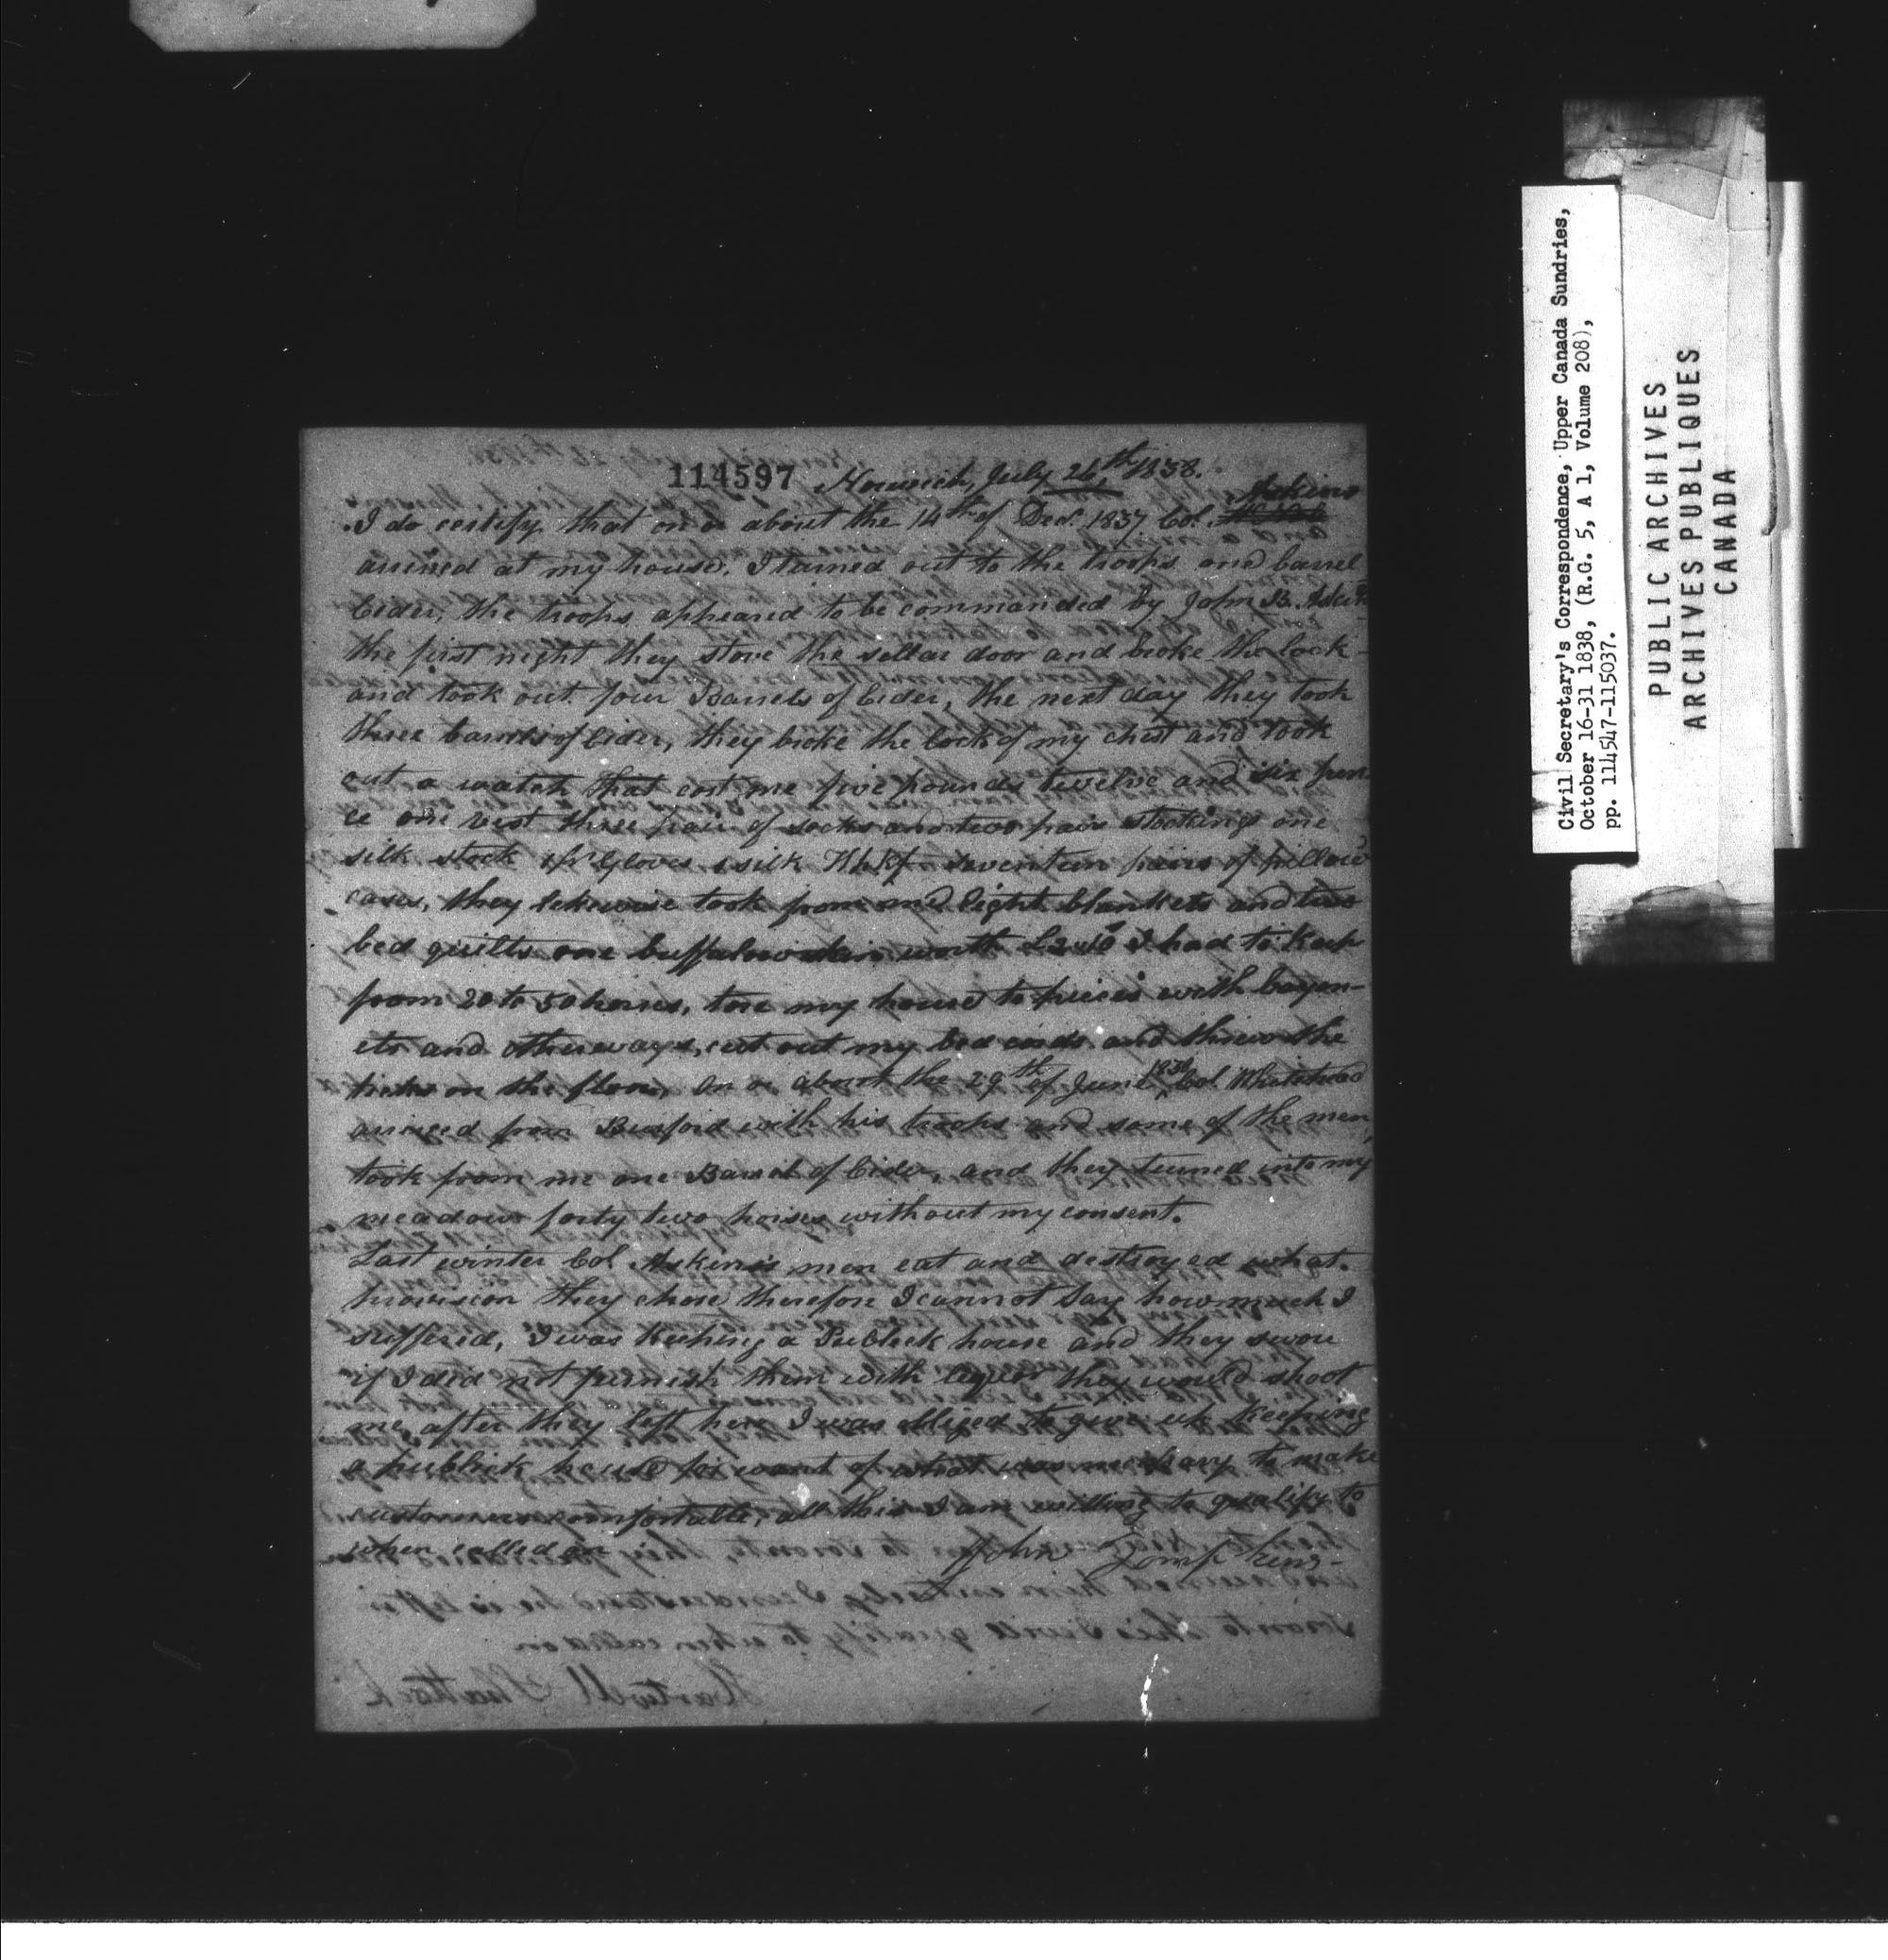 114597 Norwich, July 26th, 1838.
Askins
I do certify that on or about the 14th of Decr. 1837 Col.
arrived at my house, I turned out to the troops one barrel
Cider, the troops appeared to be commanded by John B. Askins
the first night they stove the sellar door and broke the lock
and took out four Barrels of Cider, the next day they took
three barrels of Cider, they broke the lock of my chest and took
out a watch that cost me five pounds twelve and six pen-
ce one vest three pair of socks and two pair stockings one
silk stock 1 pr Gloves 1 silk Hhkf seventeen pairs of pillow
cases, they likewise took from me eight blankets and two
bed quilts one buffalow skin worth I had to keep
from 20 to 50 horses, tore my house to pieces with bayon-
ets and otherways, cut out my bed cords and threw the
ticks on the floor, On or about the 29th of June 1838 Col. Whitehead
arrived from Burford with his troops and some of the men
took from me one Barrel of Cider, and they turned into my
meadow forty two horses without my consent.
Last winter Col. Askins's men eat and destroyed what
provision they chose therefore I cannot say how much I
suffered, I was keeping a Publick house and they swore
if I did not furnish them with liquor they would shoot
me, after they left here I was obliged to give up keeping
a publick house for want of what was necessary to make
customers comfortable, all this I am willing to qualify to
when called on John Tompkins
Civil Secretary's Correspondence, Upper Canada Sundries,
October 16-31 1838, (R.G. 5, A 1, Volume 208),
pp. 114547-115037.
PUBLIC ARCHIVES
ARCHIVES PUBLIQUES
CANADA